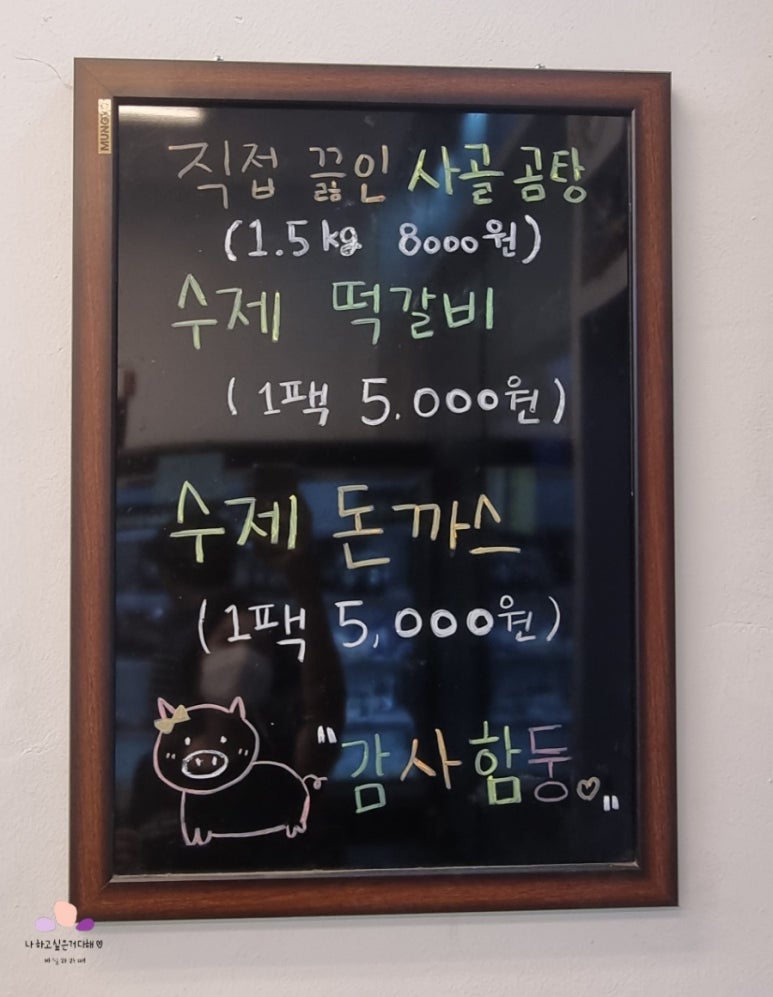 MUNGYO
직접 끓인 사골 곰탕
(1.5kg 8000원)
수제 떡갈비
(1팩 5.000원)
수제 돈까스
(1팩 5,000원)
"감사함둥♡"
나 하고싶은거다해♡